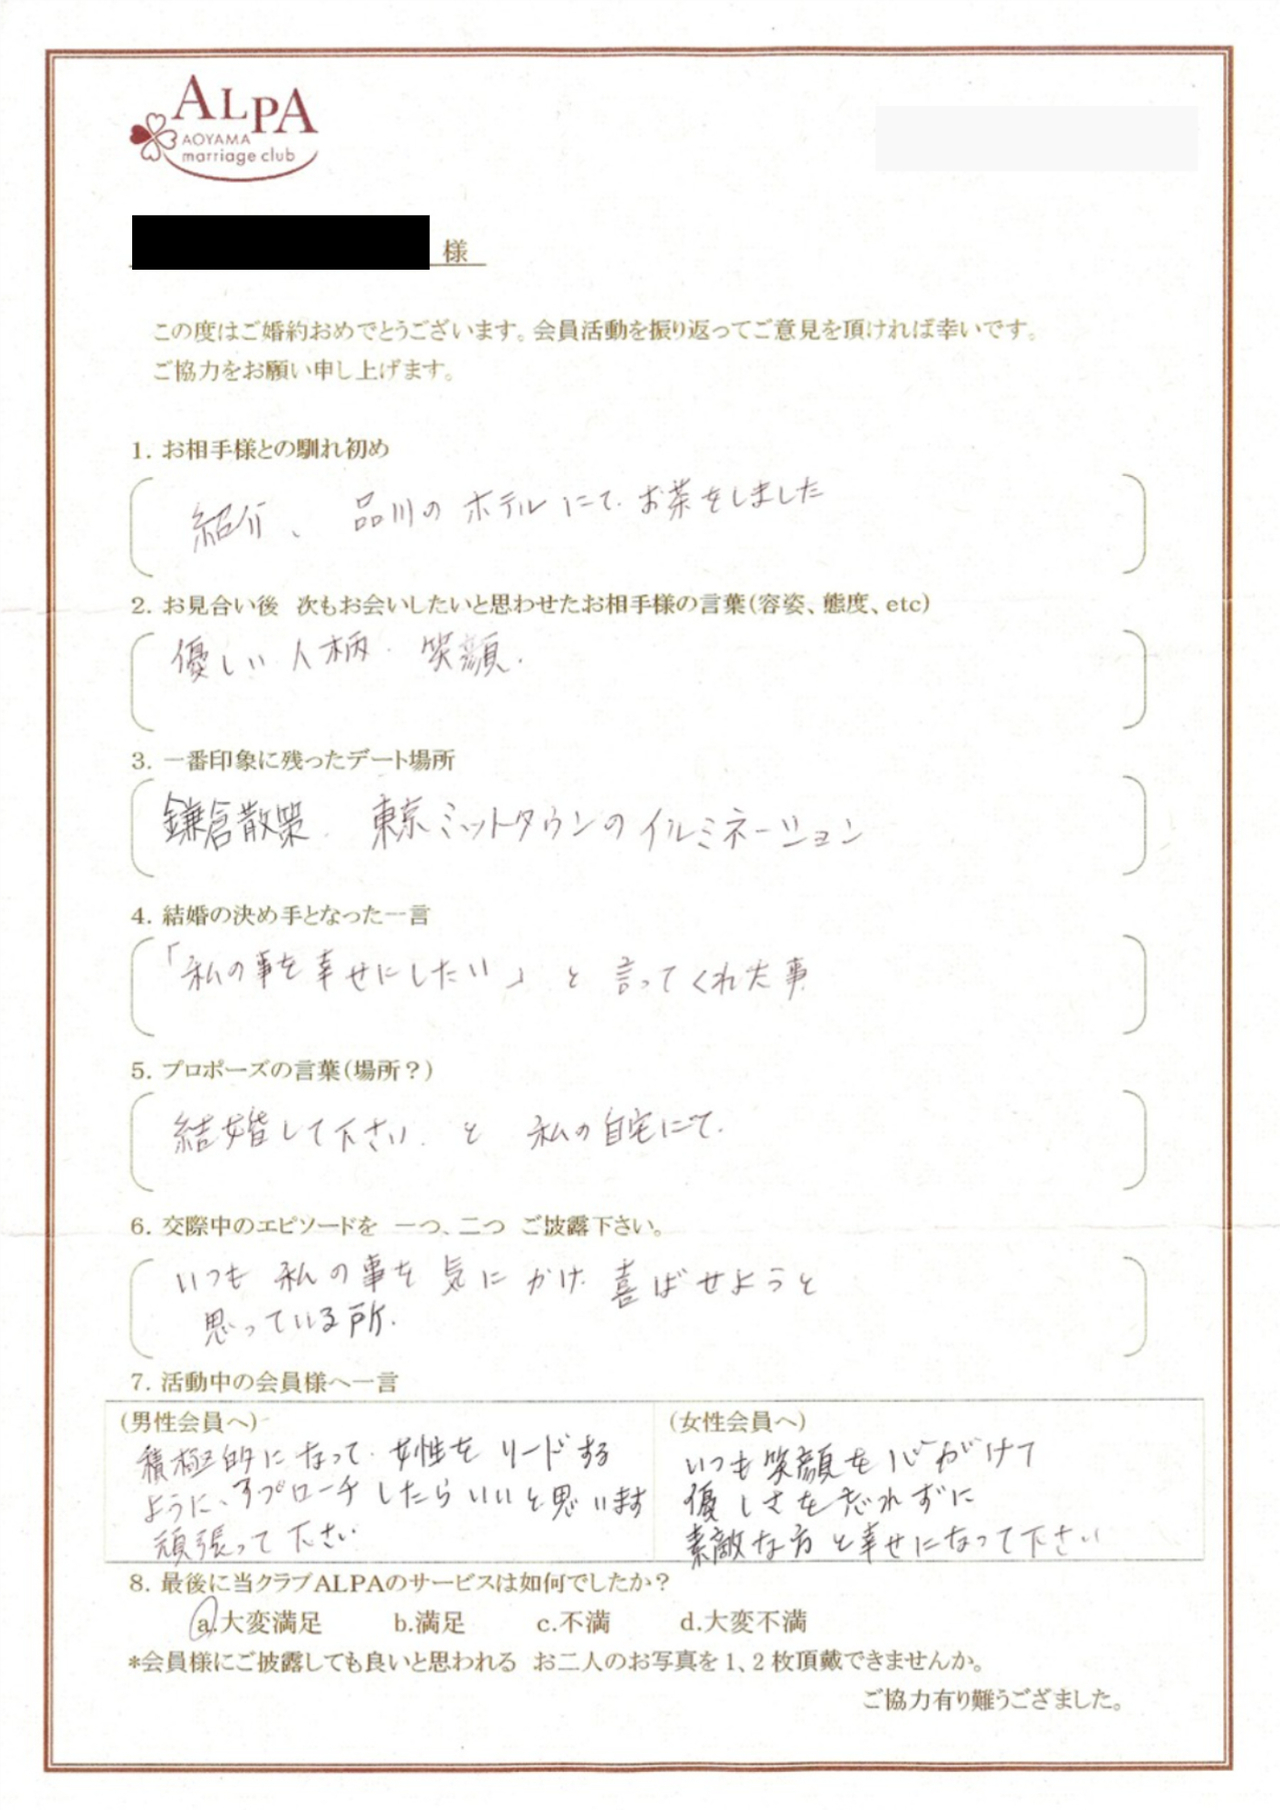 ALPA
AOYAMA
marriage club
様
この度はご婚約おめでとうございます。会員活動を振り返ってご意見を頂ければ幸いです。
ご協力をお願い申し上げます。
1. お相手様との馴れ初め
紹介、品川のホテルにて.お茶をしました
2. お見合い後 次もお会いしたいと思わせたお相手様の言葉(容姿、態度、etc)
優しい人柄.笑顔.
3. 一番印象に残ったデート場所
鎌倉散策. 東京ミットタウンのイルミネーション
4. 結婚の決め手となった一言
「私の事を幸せにしたい」と言ってくれた事
5. プロポーズの言葉(場所?)
結婚して下さい.と 私の自宅にて.
6. 交際中のエピソードを 一つ、二つ ご披露下さい。
いつも私の事を気にかけ喜ばせようと
思っている所.
7. 活動中の会員様へ一言
(男性会員へ)
積極的になって.女性をリードする
ように、アプローチしたらいいと思います
頑張って下さい
(女性会員へ)
いつも笑顔を心がけて
優しさを忘れずに
素敵な方と幸せになって下さい
8. 最後に当クラブALPAのサービスは如何でしたか?
a.大変満足 b.満足 c.不満 d.大変不満
*会員様にご披露しても良いと思われる お二人のお写真を1、2枚頂戴できませんか。
ご協力有り難うござました。